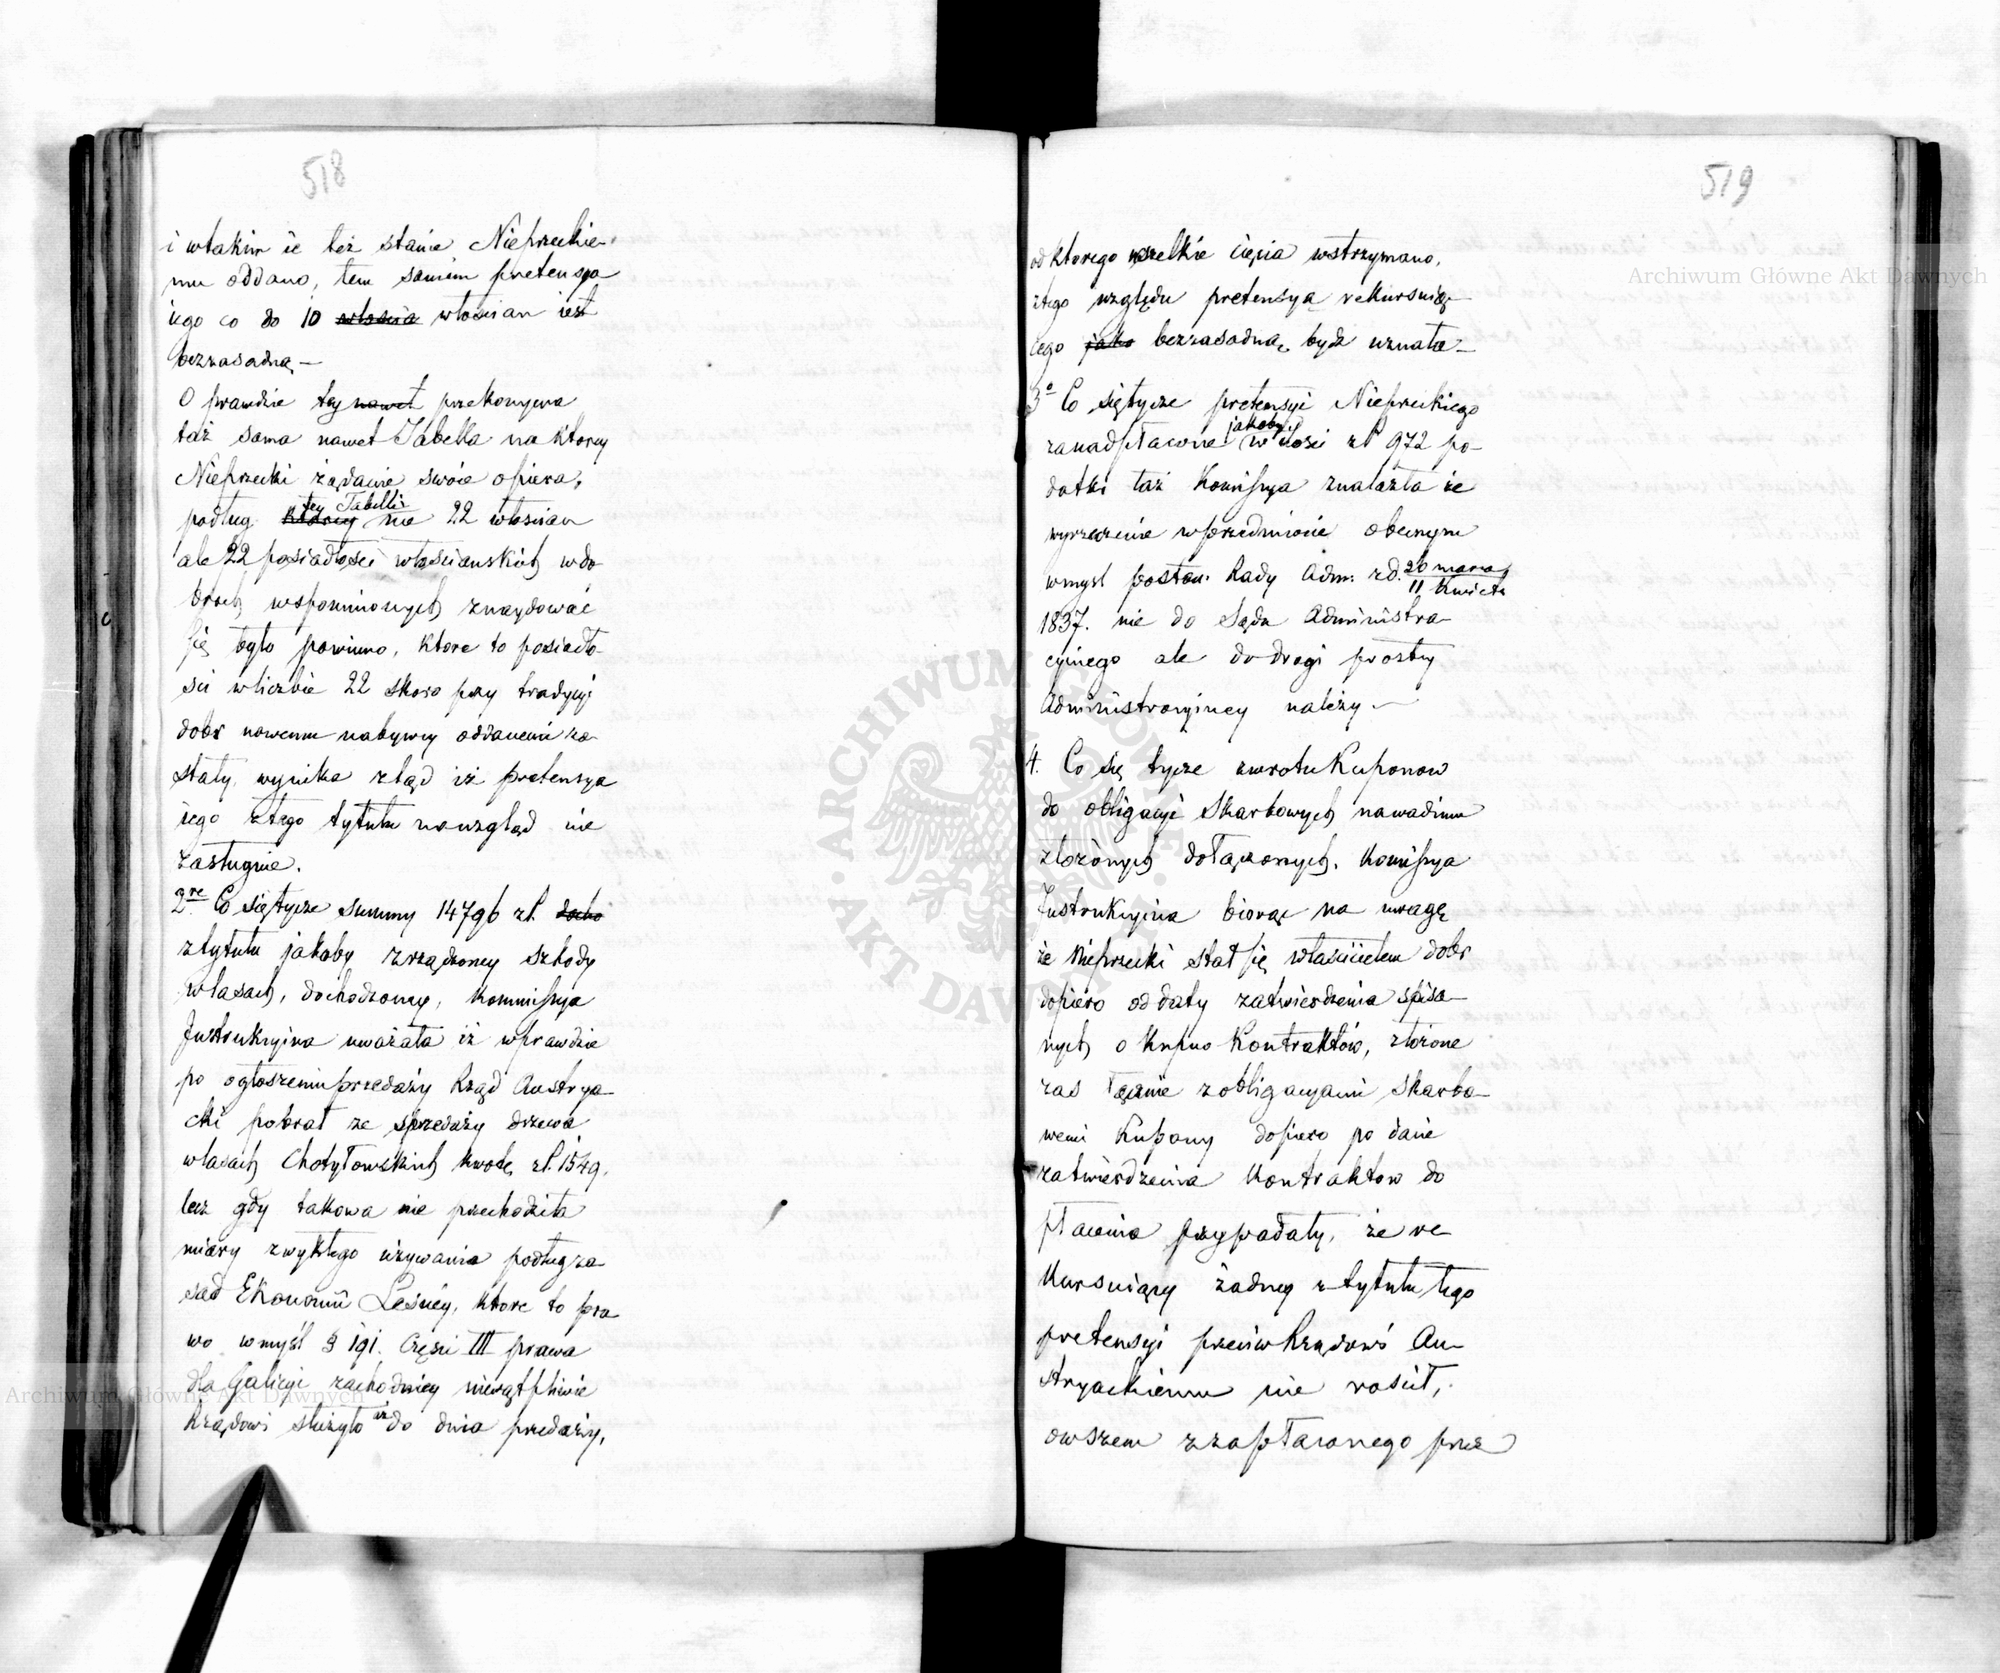 518
i wtakim że też stanie Nieprzeckie-
mu oddano, tem samem pretensya
iego co do 10 włościa włościan iest
bezzasadną —
O prawdzie tey nawet przekonywa
taż sama nawet Tabella na ktorey
Nieprzecki żądanie swóie opiera,
podług ktorey tey Tabelli nie 22 włościan
ale 22 posiadłości włościanskich wdo
brach wspomnionych znaydować
się było powinno, ktore to posiadło-
sci wliczbie 22 skoro przy tradycyi
dobr nowemu nabywcy oddanemi zo-
stały, wynika ztąd iż pretensya
iego ztego tytułu nawzgląd nie
zasługuie.
2re Co siętycze summy 14796 zł. docho
ztytułu jakoby zrządzoney szkody
wlasach, dochodzoney, Kommissya
Instrukcyina uważała iż wprawdzie
po ogłoszeniu przedaży Rząd Austrya-
cki pobrał ze sprzedaży drzewa
wlasach Chotyłowskich kwotę zł. 1549.
lecz gdy takowa nie przechodziła
miary zwykłego używania podług za-
sad Ekonomii Leśney, ktore to pra
wo wmyśl § 191. Części III prawa
dla Galicyi zachodniey niewątpliwie
Rządowi służyło aż do dnia przedaży,
519
od ktorego wszelkie cięcia wstrzymano,
ztego względu pretensyą rekursuią-
cego jako bezzasadną bydź uznała —
3o Co siętycze pretensyi Nieprzeckiego
zanadpłacone jakoby w ilości zł 972 po-
datki taż Komissya znalazła że
wyrzeczenie wprzedmiocie obecnym
wmysl postan. Rady Adm. zd. 20 marca
11 Kwietn
1837. nie do Sądu Administra-
cyinego ale do drogi prosty
Administracyiney należy —
4. Co się tycze zwrotu Kuponow
do obligacyi Skarbowych nawadium
złożonych dołączonych. Komissya
Instrukcyina biorąc na uwagę
że Nieprzecki stał się właścicielem dobr
dopiero od daty zatwierdzenia spisa-
nych o Kupno Kontraktów, złożone
zas łącznie zobligacyami skarbo-
wemi Kupony dopiero po dacie
zatwierdzenia Kontraktow do
płacenia przypadały, że re
kursuiący żadney ztytułu tego
pretensyi przeciw Rządowi Au-
stryackiemu nie rościł,
owszem zzapłaconego przez
Archiwum Główne Akt Dawnych
Archiwum Główne Akt Dawnych
ARCHIWUM GŁÓWNE AKT DAWNYCH